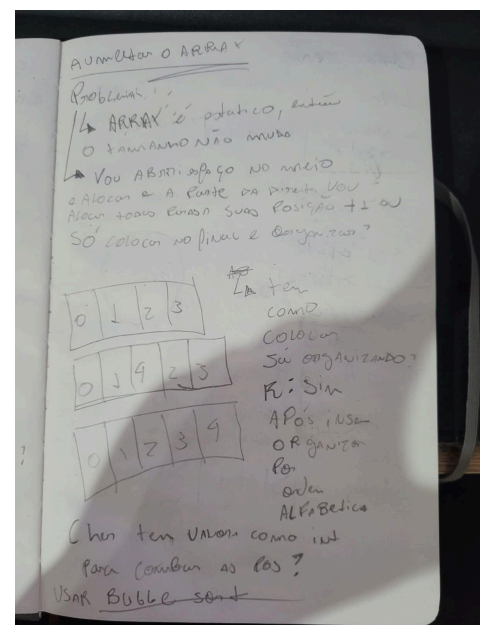 AUMENTAR O ARRAY
Problema:
↳ ARRAY é estatico, então
O TAMANHO NÃO muda
↳ VOU ABRIR espaço NO meio
e Alocar e A Parte DA Direita VOU
Alocar todos SUAS POSIÇÃO +1 OU
SÓ COLOCAR NO final e Organizar?
↳ tem
COMO
COLOCAR
Já ORGANIZANDO?
R: Sim
0 1 2 3
0 1 4 2 3
0 1 2 3 4
APÓS
ORGANIZAR
Por
orden
ALFABetica
Char tem VALOR COMO int
Para as POS?
USAR BUbble sort
?